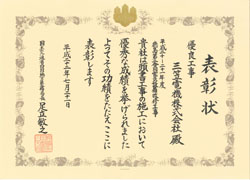 表彰状
優良工事
三笠電機株式会社殿
平成二十一・二十二年度
貴社は頭書工事の施工において
優秀な成績を挙げられました
よってその功績をたたえここに
表彰します
平成二十三年七月二十一日
足立敏之